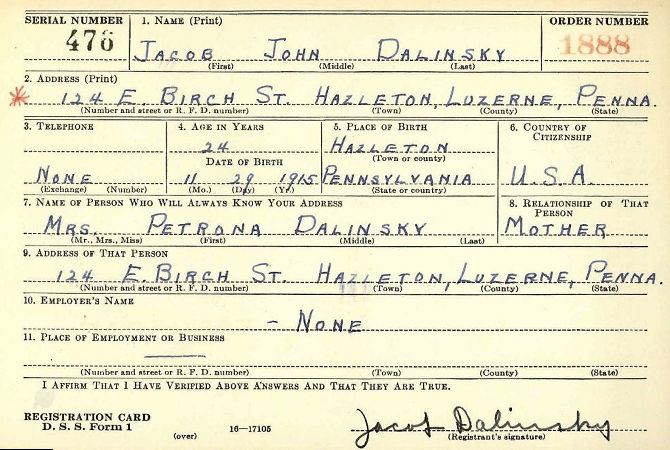 SERIAL NUMBER 1. NAME (Print) ORDER NUMBER
476 JACOB JOHN DALINSKY 1888
(First) (Middle) (Last)
2. ADDRESS (Print)
* 124 E. BIRCH ST. HAZLETON, LUZERNE, PENNA.
(Number and street or R. F. D. number) (Town) (County) (State)
3. TELEPHONE 4. AGE IN YEARS 5. PLACE OF BIRTH 6. COUNTRY OF CITIZENSHIP
24 HAZLETON
(Town or county)
DATE OF BIRTH
NONE 11 29 1915 PENNSYLVANIA U.S.A.
(Exchange) (Number) (Mo.) (Day) (Yr.) (State or country)
7. NAME OF PERSON WHO WILL ALWAYS KNOW YOUR ADDRESS 8. RELATIONSHIP OF THAT PERSON
MRS. PETRONA DALINSKY MOTHER
(Mr., Mrs., Miss) (First) (Middle) (Last)
9. ADDRESS OF THAT PERSON
124 E. BIRCH ST. HAZLETON, LUZERNE, PENNA.
(Number and street or R. F. D. number) (Town) (County) (State)
10. EMPLOYER'S NAME
- NONE
11. PLACE OF EMPLOYMENT OR BUSINESS
(Number and street or R. F. D. number) (Town) (County) (State)
I AFFIRM THAT I HAVE VERIFIED ABOVE ANSWERS AND THAT THEY ARE TRUE.
REGISTRATION CARD
D. S. S. Form 1 Jacob Dalinsky
(over) 16—17105 (Registrant's signature)